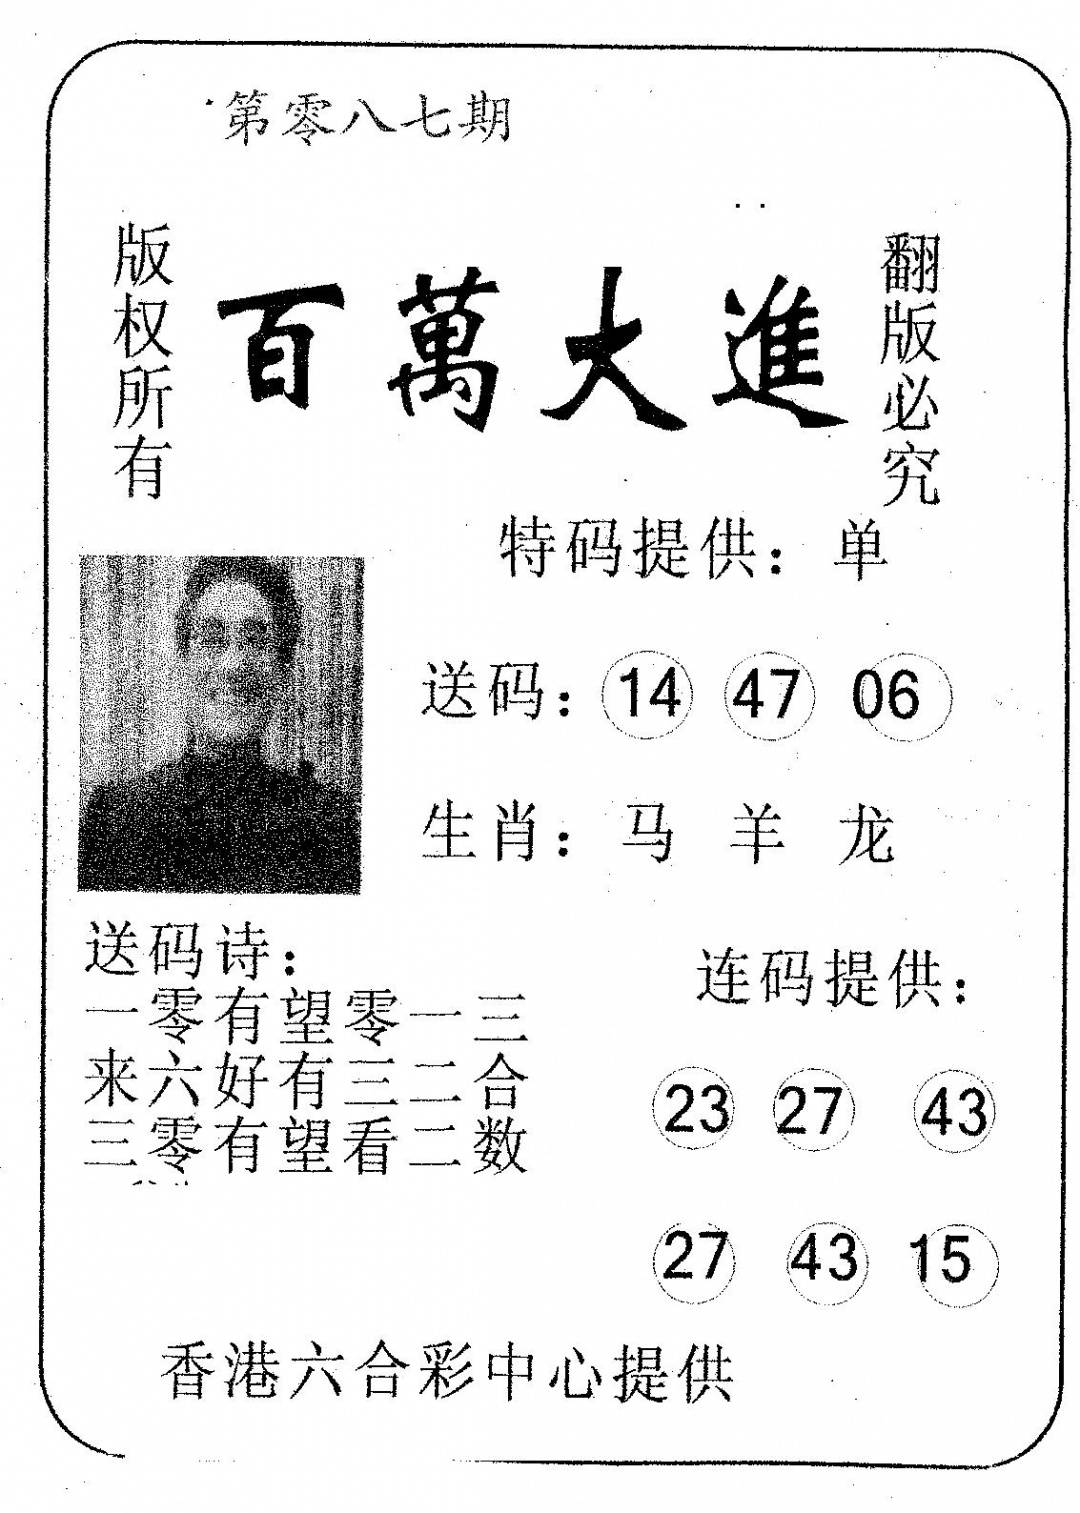 第零八七期
版权所有
百萬大進
翻版必究
特码提供：单
送码：14 47 06
生肖：马 羊 龙
送码诗：
一零有望零一三
来六好有三二合
三零有望看二数
连码提供：
23 27 43
27 43 15
香港六合彩中心提供